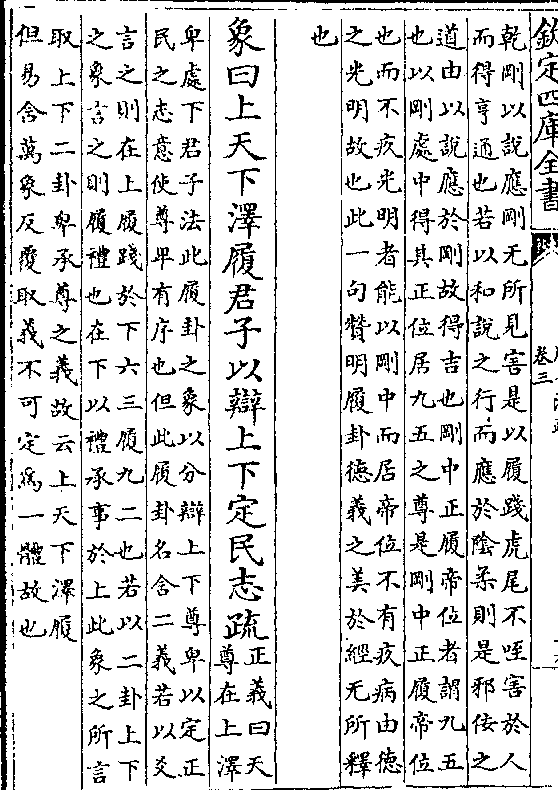 欽定四庫全書
卷三
乾剛以說應剛无所見害是以履踐虎尾不咥害於人
而得亨通也若以和說之行而應於陰柔則是邪佞之
道由以說應於剛故得吉也剛中正履帝位者謂九五
也以剛處中得其正位居九五之尊是剛中正履帝位
也而不疚光明者能以剛中而居帝位不有疚病由德
之光明故也此一句贊明履卦德義之美於經无所釋
也
象曰上天下澤履君子以辯上下定民志疏
正義曰天
尊在上澤
卑處下君子法此履卦之象以分辯上下尊卑以定正
民之志意使尊卑有序也但此履卦名含二義若以爻
言之則在上履踐於下六三履九二也若以二卦上下
之象言之則履禮也在下以禮承事於上此象之所言
取上下二卦卑承尊之義故云上天下澤履
但易含萬象反覆取義不可定為一體故也